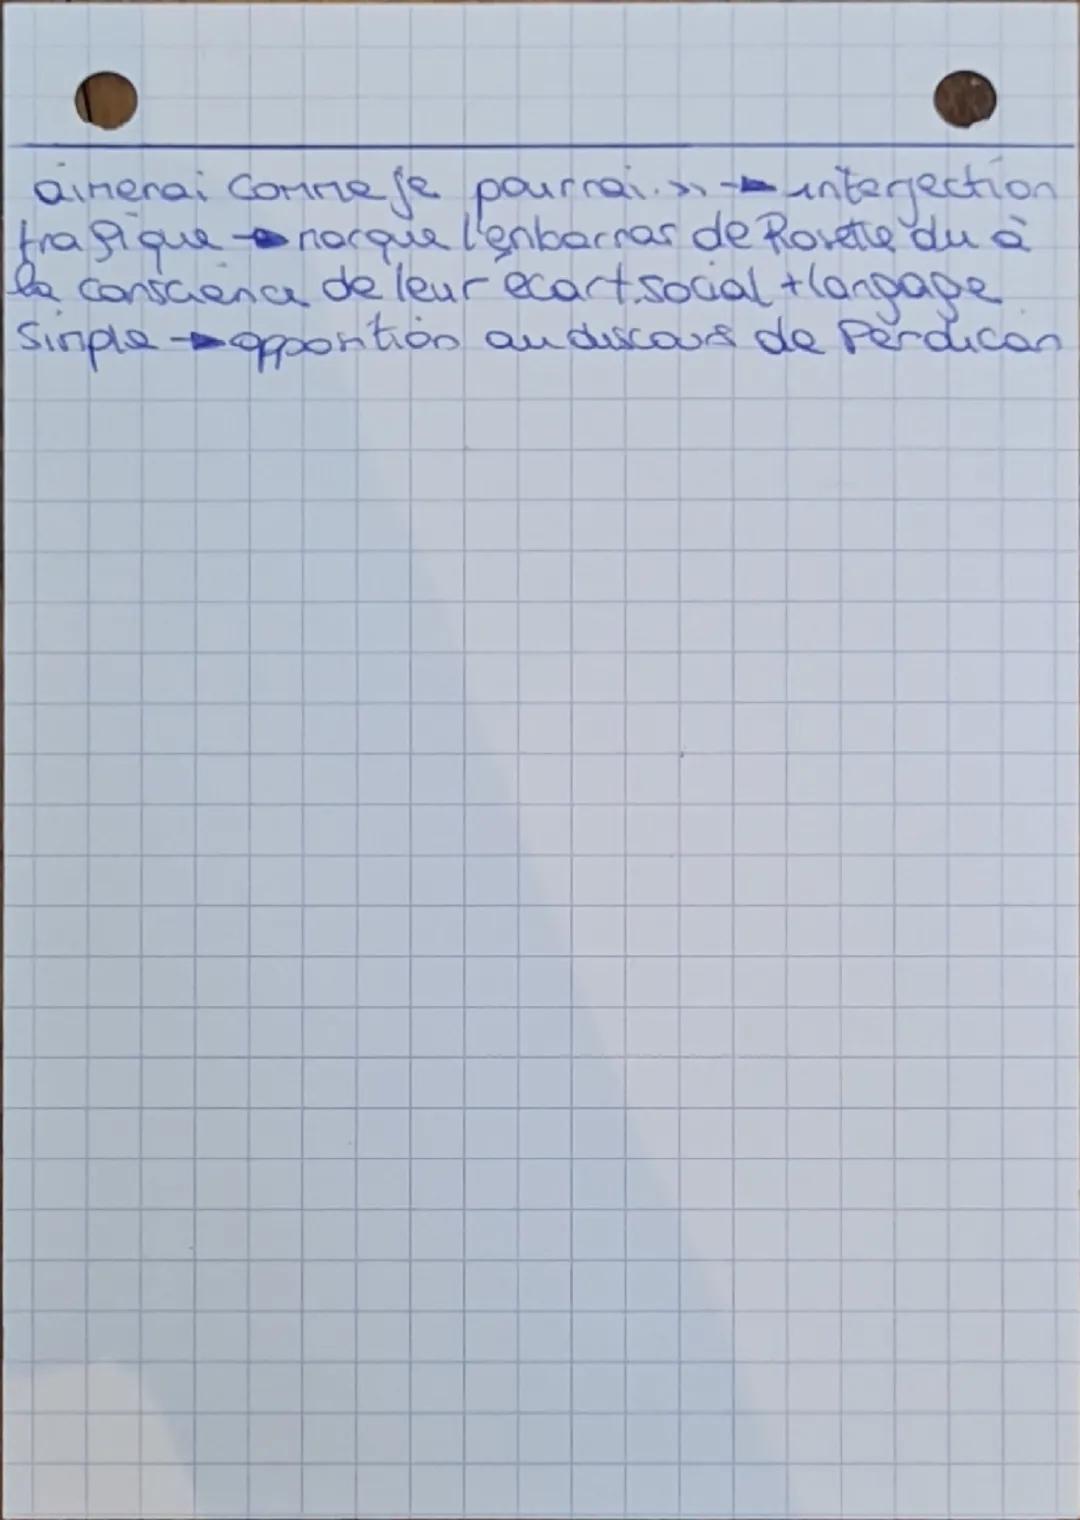 aimerai comme je pourrai. » → interjection
tragique → marque l'enbarras de Rosette du à
la conscience de leur écart social + langage
simple → opposition au discours de Perdican